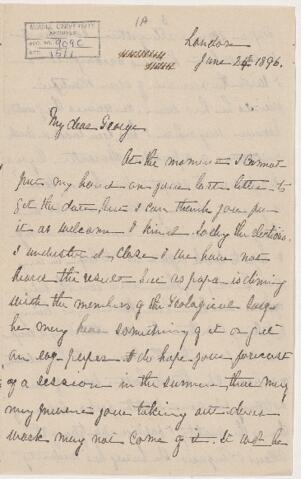 McGILL UNIVERSITY
ARCHIVES
ACC. NO. 909C
REF. 15/1
1A
London
June 24 1896.
My dear George
At the moment I cannot
put my hand on your last letter to
get the date but I can thank you for
it as welcome & kind. Today the elections,
I understand, close & we have not
heard the result but as papa is dining
with the members of the Geological Surv
he may hear something of it or get
an evg. paper. I do hope your forecast
of a session in the summer that may
may prevent your taking out door
work may not come of it. It will be